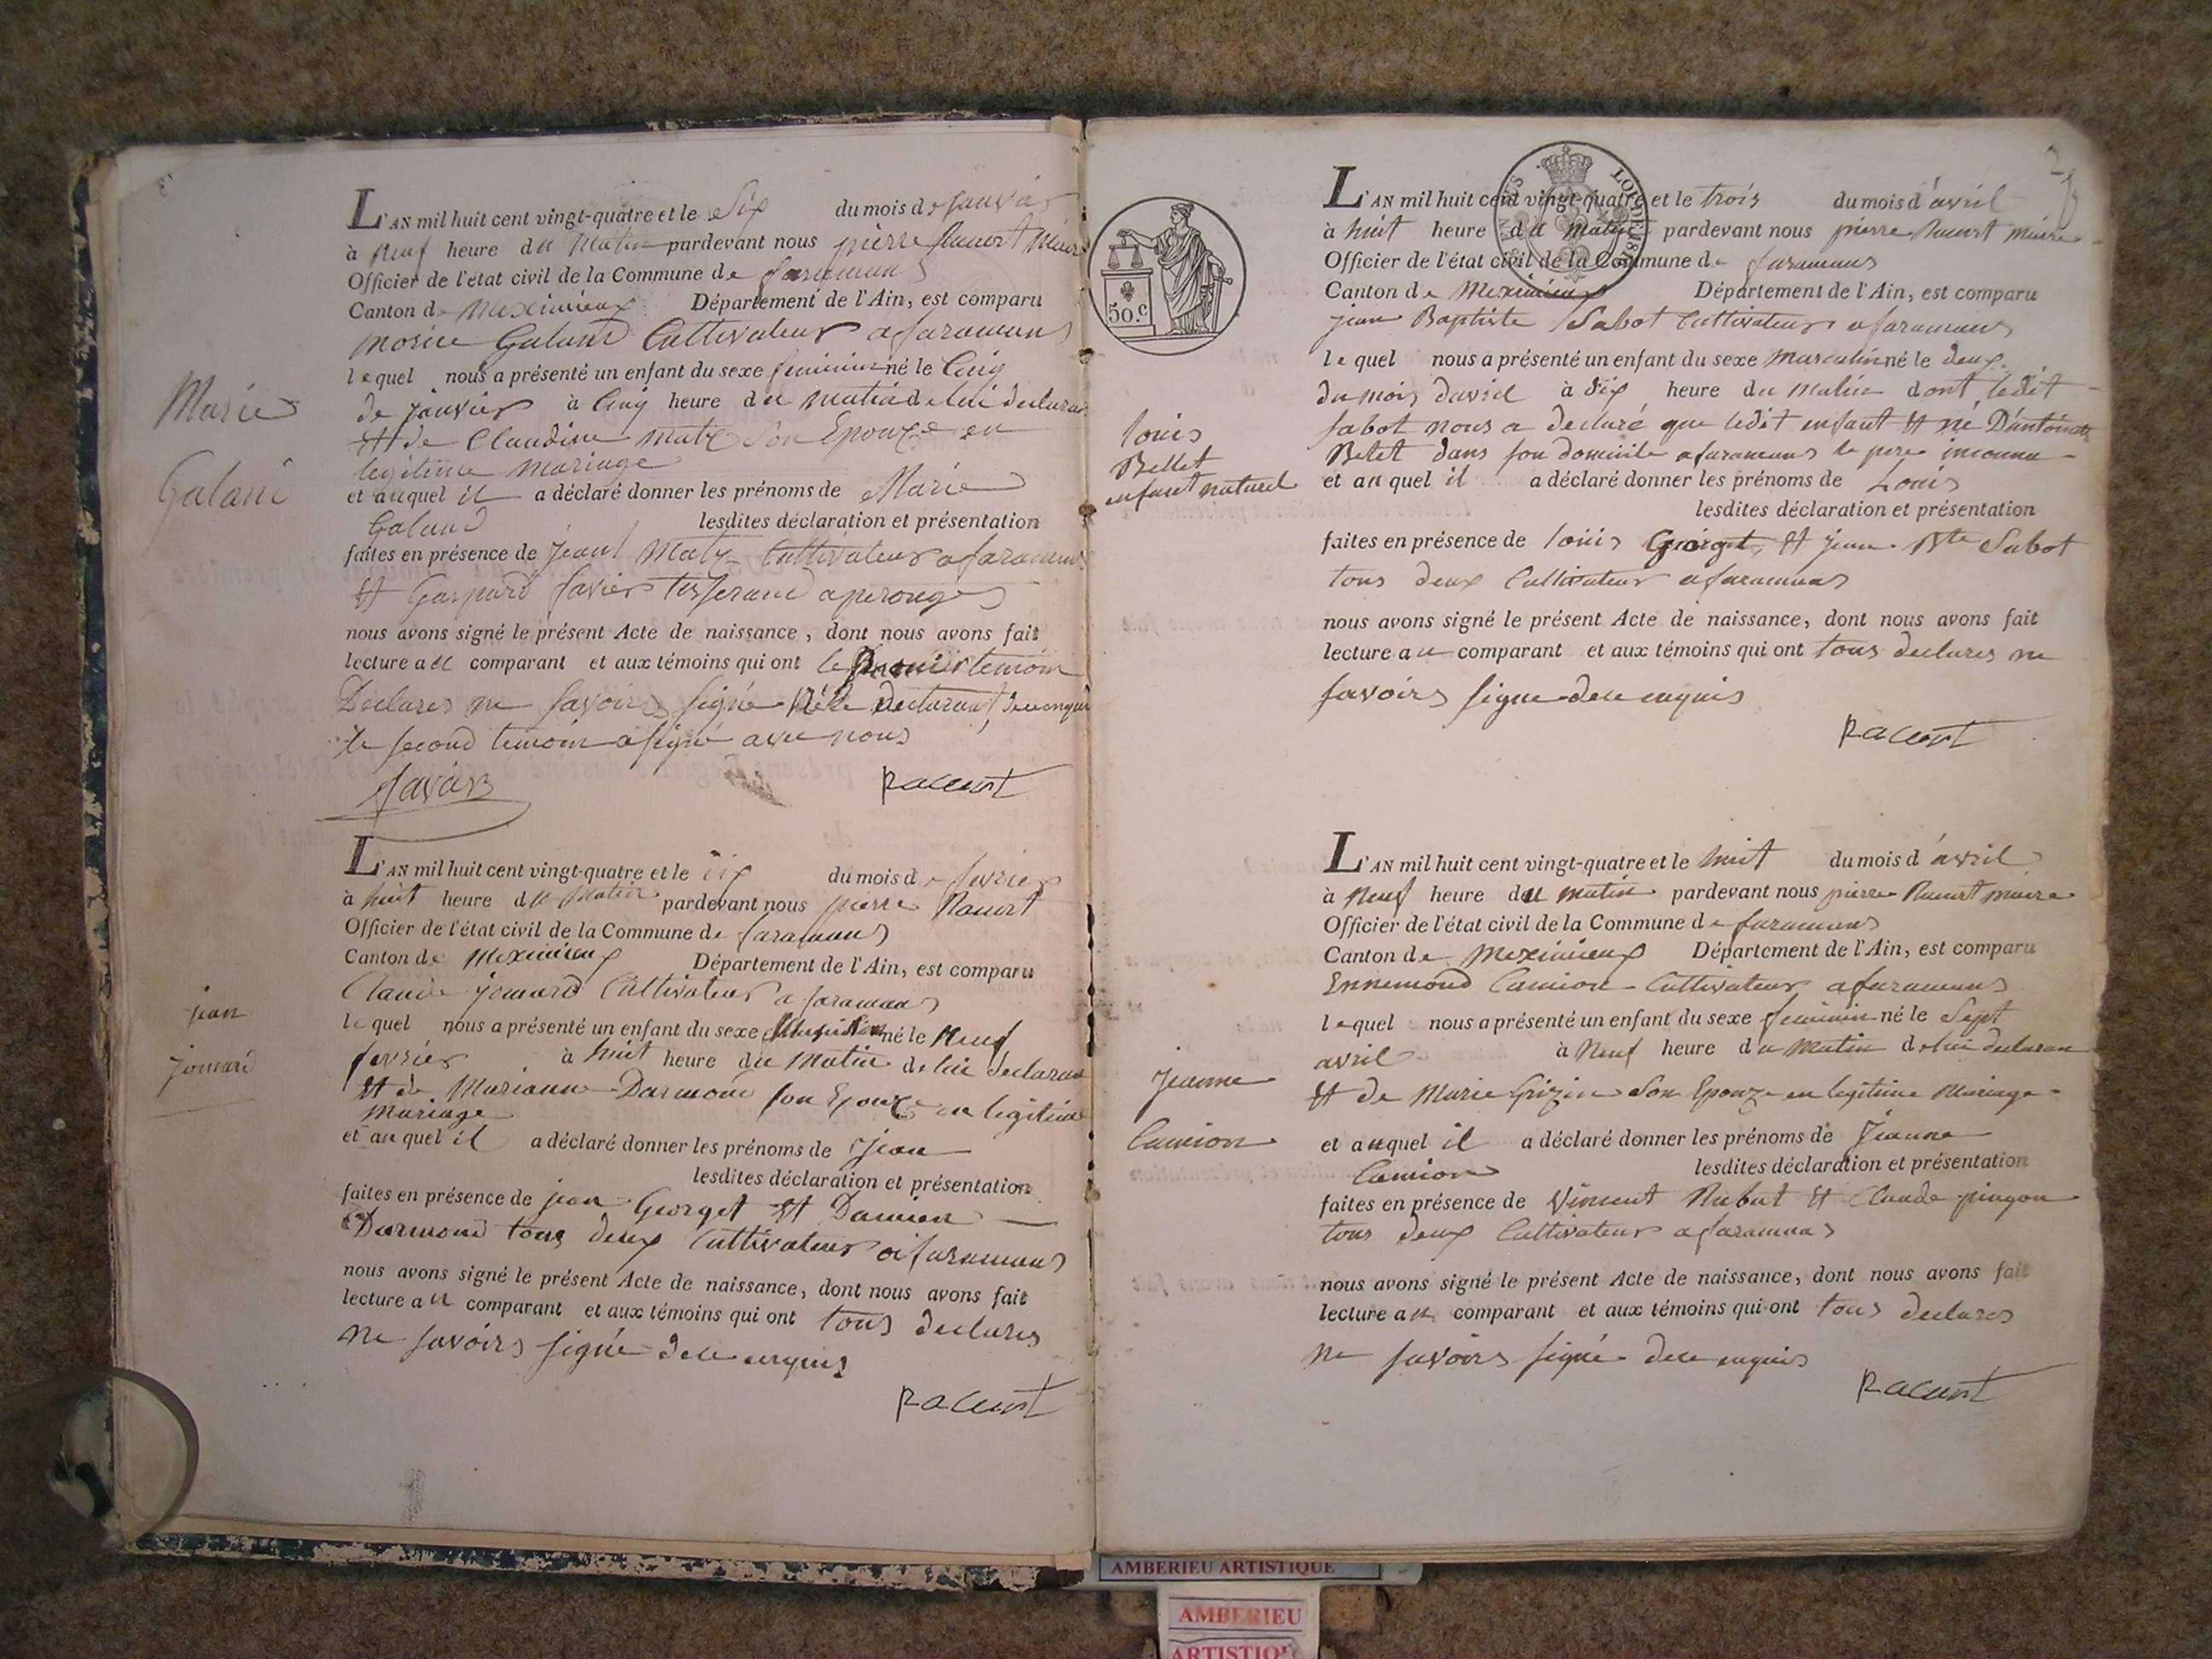 L'AN mil huit cent vingt-quatre et le Six du mois de Janvier
à Neuf heure du Matin pardevant nous pierre Racurt Maire
Officier de l'état civil de la Commune de faramans
Canton de Meximieux Département de l'Ain, est comparu
morice Galand Cultivateur a faramans
lequel nous a présenté un enfant du sexe feminin né le Cinq
de janvier à Cinq heure du matin de lui declarant
Et de Claudine Matz Son Epouze en
legitime mariage
et auquel il a déclaré donner les prénoms de Marie
Galand lesdites déclaration et présentation
faites en présence de Jean Matz Cultivateur a faramans
Et Gaspard favier tesserand a perouges
nous avons signé le présent Acte de naissance, dont nous avons fait
lecture au comparant et aux témoins qui ont le premier temoin
Declares ne favoirs signé le declarant, de ce enquis
le second temoin a signé avec nous
favier Racurt
Marie
Galand
L'AN mil huit cent vingt-quatre et le dix du mois de fevrier
à huit heure du Matin pardevant nous pierre Racurt
Officier de l'état civil de la Commune de faramans
Canton de Meximieux Département de l'Ain, est comparu
Claude jomard Cultivateur a faramans
lequel nous a présenté un enfant du sexe né le Neuf
fevrier à huit heure du Matin de lui declarant
Et de Marianne Darmond son Epouze en legitime
Mariage
et auquel il a déclaré donner les prénoms de Jean
lesdites déclaration et présentation
faites en présence de jean Georget Et Damien
Darmond tous deux Cultivateur a faramans
nous avons signé le présent Acte de naissance, dont nous avons fait
lecture au comparant et aux témoins qui ont tous declares
ne savoirs signé de ce enquis
Racurt
jean
jomard
2
50.c
L'AN mil huit cent vingt-quatre et le trois du mois d'avril
à huit heure du matin pardevant nous pierre Racurt maire
Officier de l'état civil de la Commune de faramans
Canton de Meximieux Département de l'Ain, est comparu
jean Baptiste Sabot Cultivateur a faramans
lequel nous a présenté un enfant du sexe Masculin né le deux
du mois davril à dix heure du Matin dont ledit
sabot nous a declaré que ledit enfant Et né D'antoinette
Bellet dans son domicile a faramans le pere inconnu
et auquel il a déclaré donner les prénoms de Louis
lesdites déclaration et présentation
faites en présence de louis Georget, Et jean Bte Sabot
tous deux Cultivateur a faramans
nous avons signé le présent Acte de naissance, dont nous avons fait
lecture au comparant et aux témoins qui ont tous declares ne
savoirs signe de ce enquis
Racurt
louis
Bellet
enfant naturel
L'AN mil huit cent vingt-quatre et le huit du mois d'avril
à Neuf heure du matin pardevant nous pierre Racurt maire
Officier de l'état civil de la Commune de faramans
Canton de Meximieux Département de l'Ain, est comparu
Ennemond Camion Cultivateur a faramans
lequel nous a présenté un enfant du sexe feminin né le Sept
avril à Neuf heure du Matin de lui declaran
Et de Marie Grizin Son Epouze en legitime Mariage
et auquel il a déclaré donner les prénoms de Jeanne
Camion lesdites déclaration et présentation
faites en présence de Vincent Rubat Et Claude pingon
tous deux Cultivateur a faramans
nous avons signé le présent Acte de naissance, dont nous avons fait
lecture au comparant et aux témoins qui ont tous declares
ne savoirs signé de ce enquis
Racurt
Jeanne
Camion
AMBERIEU ARTISTIQUE
AMBERIEU
ARTISTIQUE